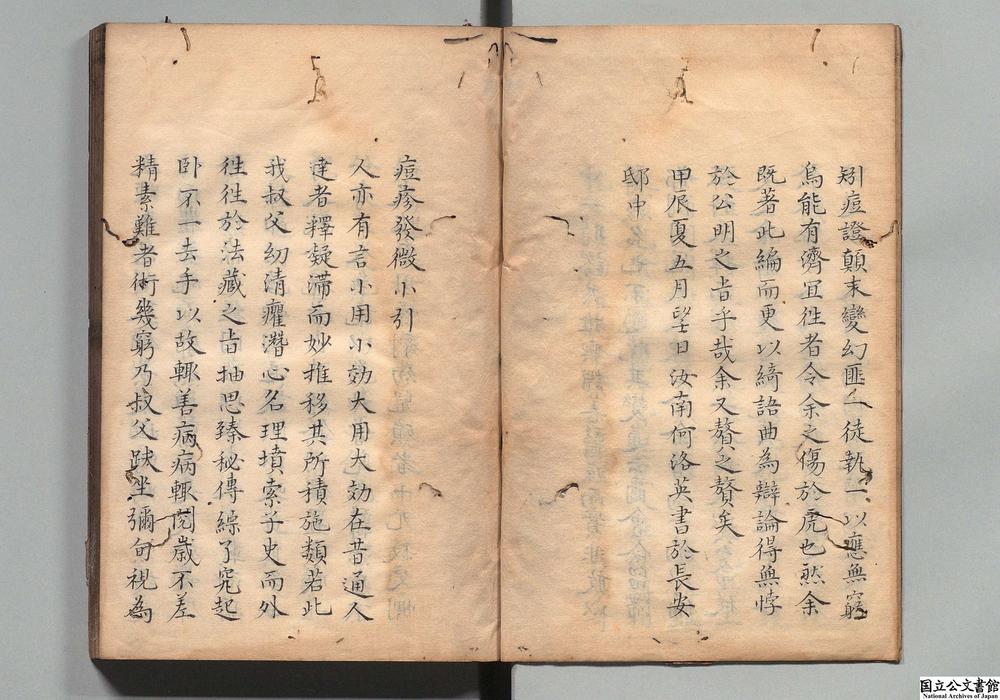 矧痘證顛末變幻匪一徒執一以應無窮
烏能有濟宜徃者令余之傷於虎也然余
既著此編而更以綺語曲為辯論得無悖
於公明之旨乎哉余又贅之贅矣
甲辰夏五月望日汝南何洛英書於長安
邸中
痘疹發微小引
人亦有言小用小効大用大効在昔通人
達者釋凝滯而妙推移其所積施類若此
我叔父幼清癯潛心名理墳索子史而外
徃徃於法藏之旨抽思臻秘傳綜了寃起
卧不一去手以故輙善病病輙閲歲不差
精素難者術幾窮乃叔父趺坐彌旬視為
国立公文書館
National Archives of Japan